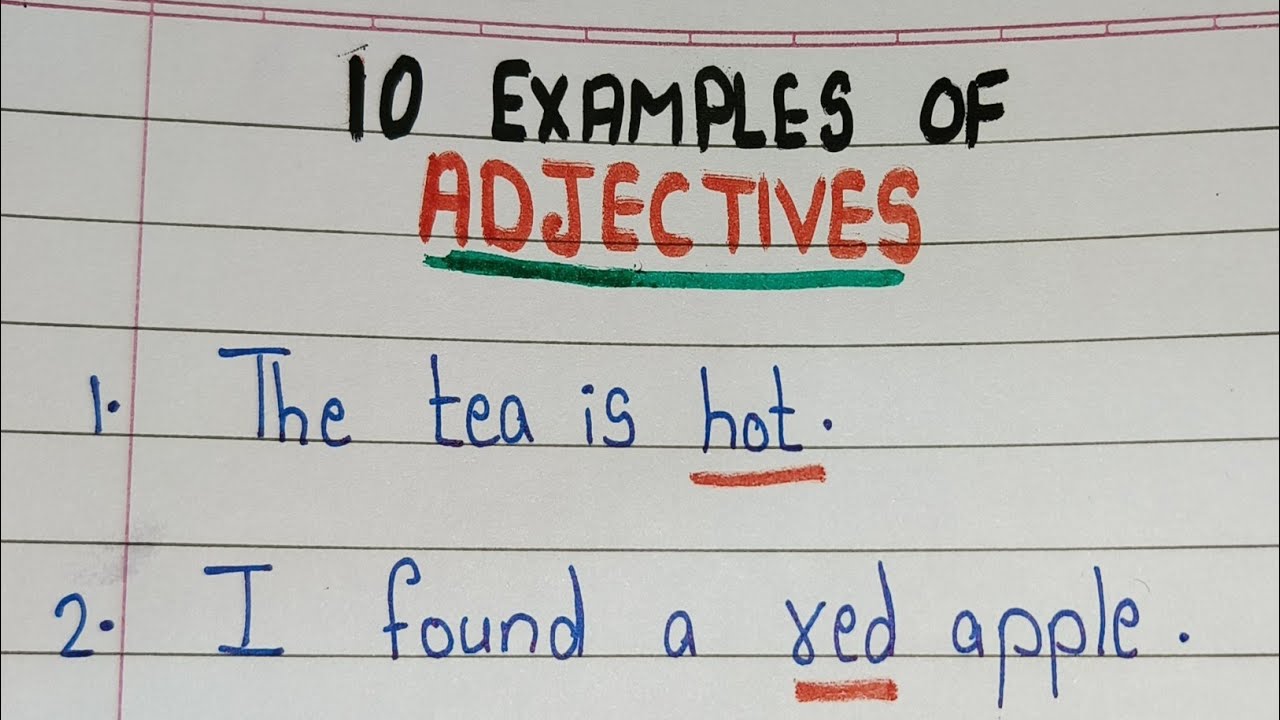 10 EXAMPLES OF
ADJECTIVES
1. The tea is hot.
2. I found a red apple.